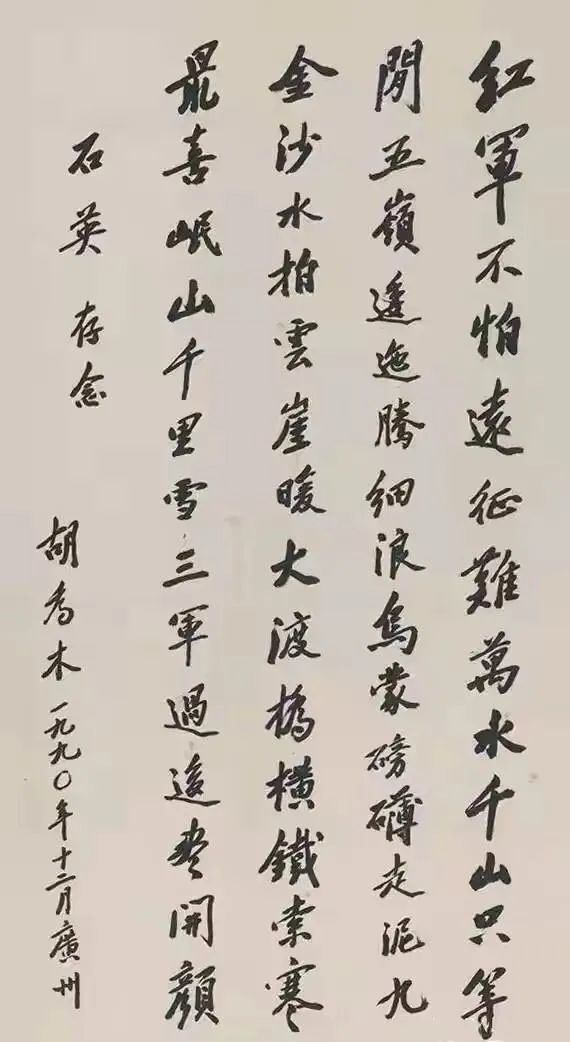 紅軍不怕遠征難萬水千山只等
閒五嶺逶迤騰細浪烏蒙磅礴走泥九
金沙水拍雲崖暖大渡橋橫鐵索寒
最喜岷山千里雪三軍過後盡開顏
石英 存念
胡喬木一九九〇年十二月廣州